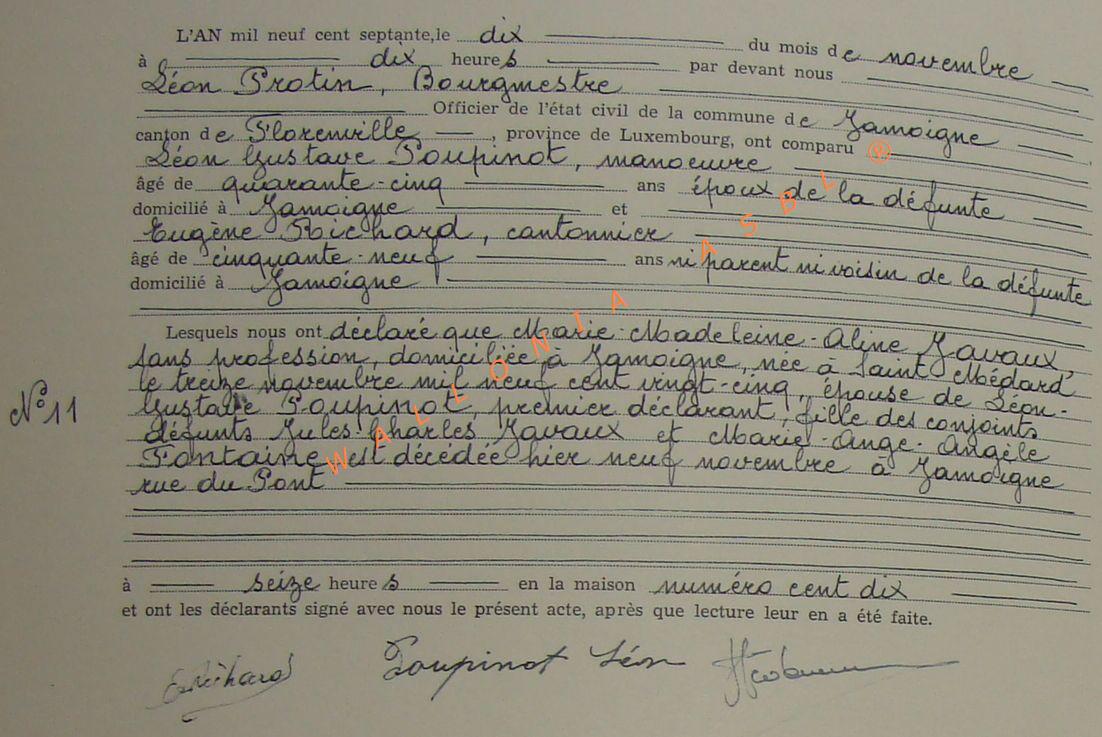 L'AN mil neuf cent septante, le dix du mois de novembre
à dix heures par devant nous
Léon Protin, Bourgmestre
Officier de l'état civil de la commune de Jamoigne
canton de Florenville, province de Luxembourg, ont comparu
Léon Gustave Poupinot, manoeuvre
âgé de quarante-cinq ans époux de la défunte
domicilié à Jamoigne et
Eugène Richard, cantonnier
âgé de cinquante-neuf ans ni parent ni voisin de la défunte
domicilié à Jamoigne
Lesquels nous ont déclaré que Marie-Madeleine-Aline Javaux,
sans profession, domiciliée à Jamoigne, née à Saint Médard
le treize novembre mil neuf cent vingt-cinq, épouse de Léon-
N° 11
Gustave Poupinot, premier déclarant, fille des conjoints
défunts Jules-Charles Javaux et Marie-Ange-Angèle
Fontaine est décédée hier neuf novembre à Jamoigne
rue du Pont
à seize heures en la maison numéro cent dix
et ont les déclarants signé avec nous le présent acte, après que lecture leur en a été faite.
ERichard Poupinot Léon
WALLONIA ASBL ®